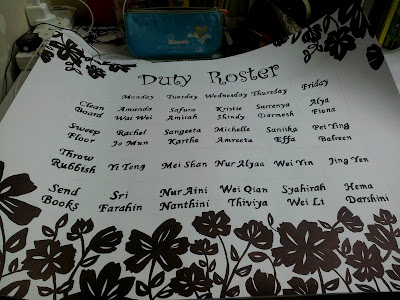 Duty Roster
Monday Tuesday Wednesday Thursday Friday
Clean Amanda Safura Kristie Sarrenya Alya
Board Wai Wei Amirah Shindy Darmesh Fiona
Sweep Rachel Sangeeta Michelle Saniska Pei Ying
Floor Jo Mun Karthe Amreeta Effa Balreen
Throw
Rubbish Yi Teng Mei Shan Nur Alyaa Wei Yin Jing Yen
Send Sri Nur Aini Wei Qian Syahirah Hema
Books Farahin Nanthini Thiviya Wei Li Darshini